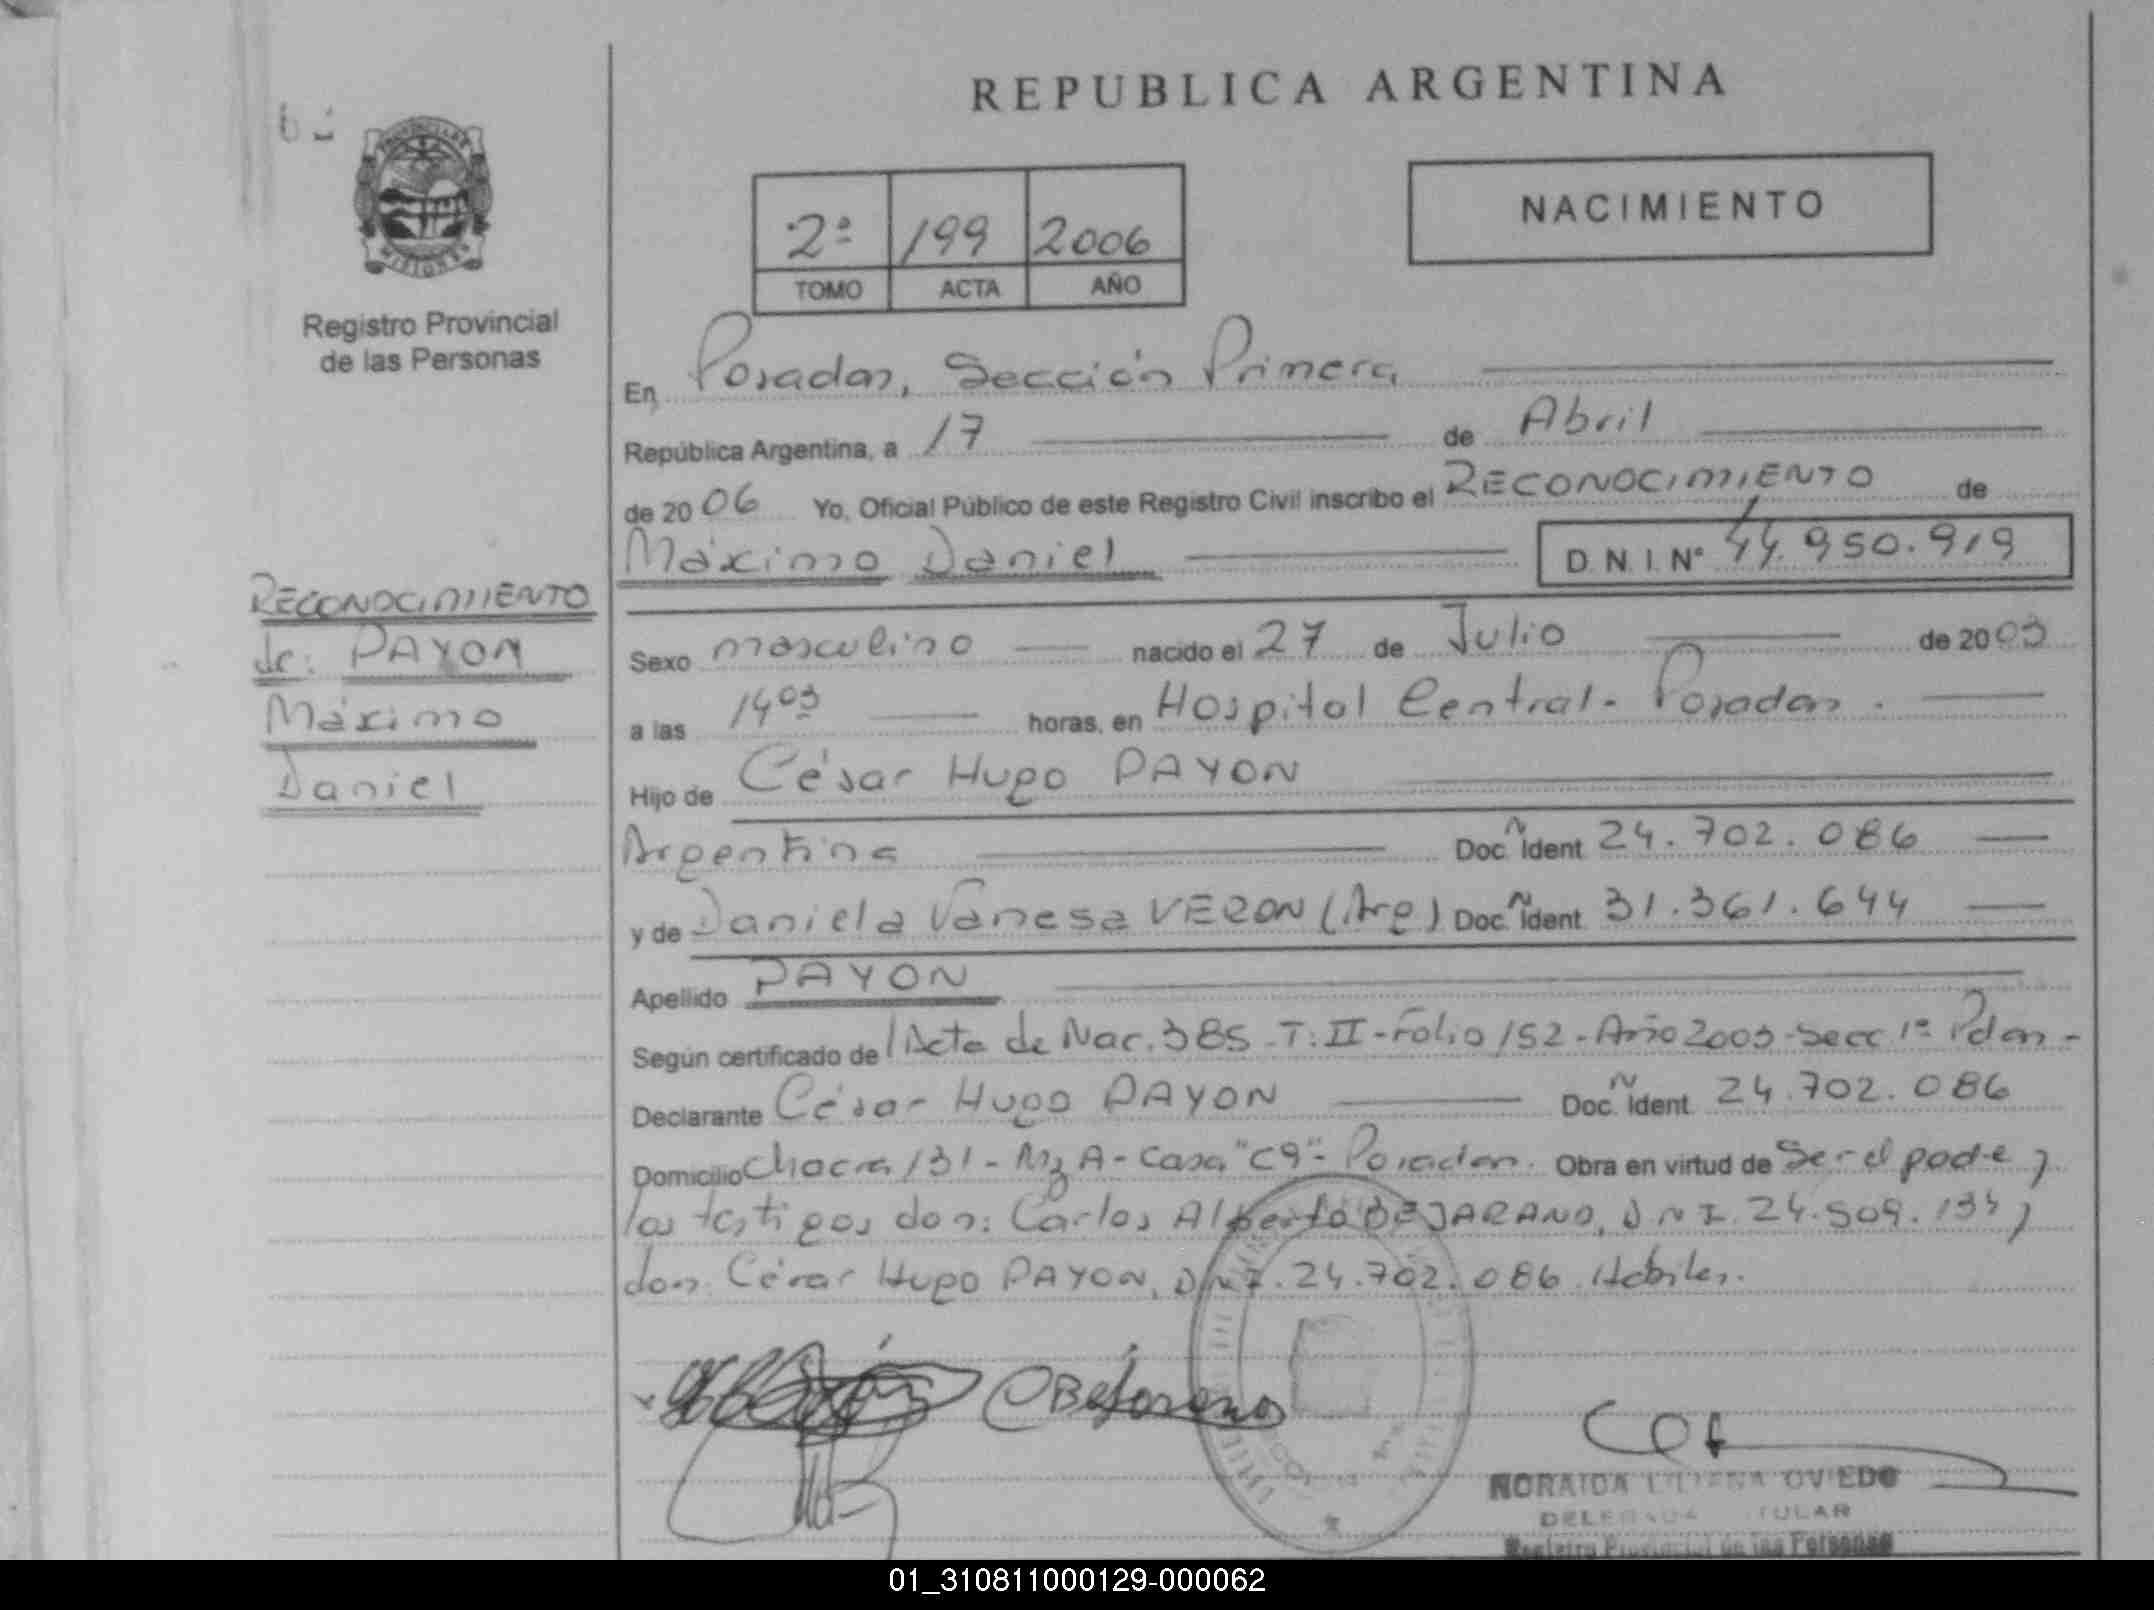 REPUBLICA ARGENTINA
NACIMIENTO
2º 199 2006
TOMO ACTA AÑO
PROVINCIA DE
MISIONES
Registro Provincial
de las Personas
RECONOCIMIENTO
de: PAYON
Máximo
Daniel
En Posadas, Sección Primera
República Argentina, a 17 de Abril
de 2006 Yo, Oficial Público de este Registro Civil inscribo el RECONOCIMIENTO de
Máximo Daniel D.N.I. Nº 44.950.919
Sexo masculino nacido el 27 de Julio de 2003
a las 14 03 horas, en Hospital Central - Posadas.
Hijo de César Hugo PAYON
Argentina Doc. Ident 24.702.086
y de Daniela Vanesa VERON (Arg) Doc. Ident. 31.361.644
Apellido PAYON
Según certificado de Acta de Nac. 385 - T: II - Folio 152 - Año 2003 - Secc 1º Pdas -
Declarante César Hugo PAYON Doc. Ident. 24.702.086
Domicilio Chacra 131 - Mz A - Casa "C9" - Posadas. Obra en virtud de Ser el padre y
los testigos don: Carlos Alberto BEJARANO, D.N.I. 24.509.134 y
don César Hugo PAYON, D.N.I. 24.702.086. Hábiles.
CBejarano
NORAIDA LILIANA OVIEDO
DELEGADA TITULAR
Registro Provincial de las Personas
01_310811000129-000062